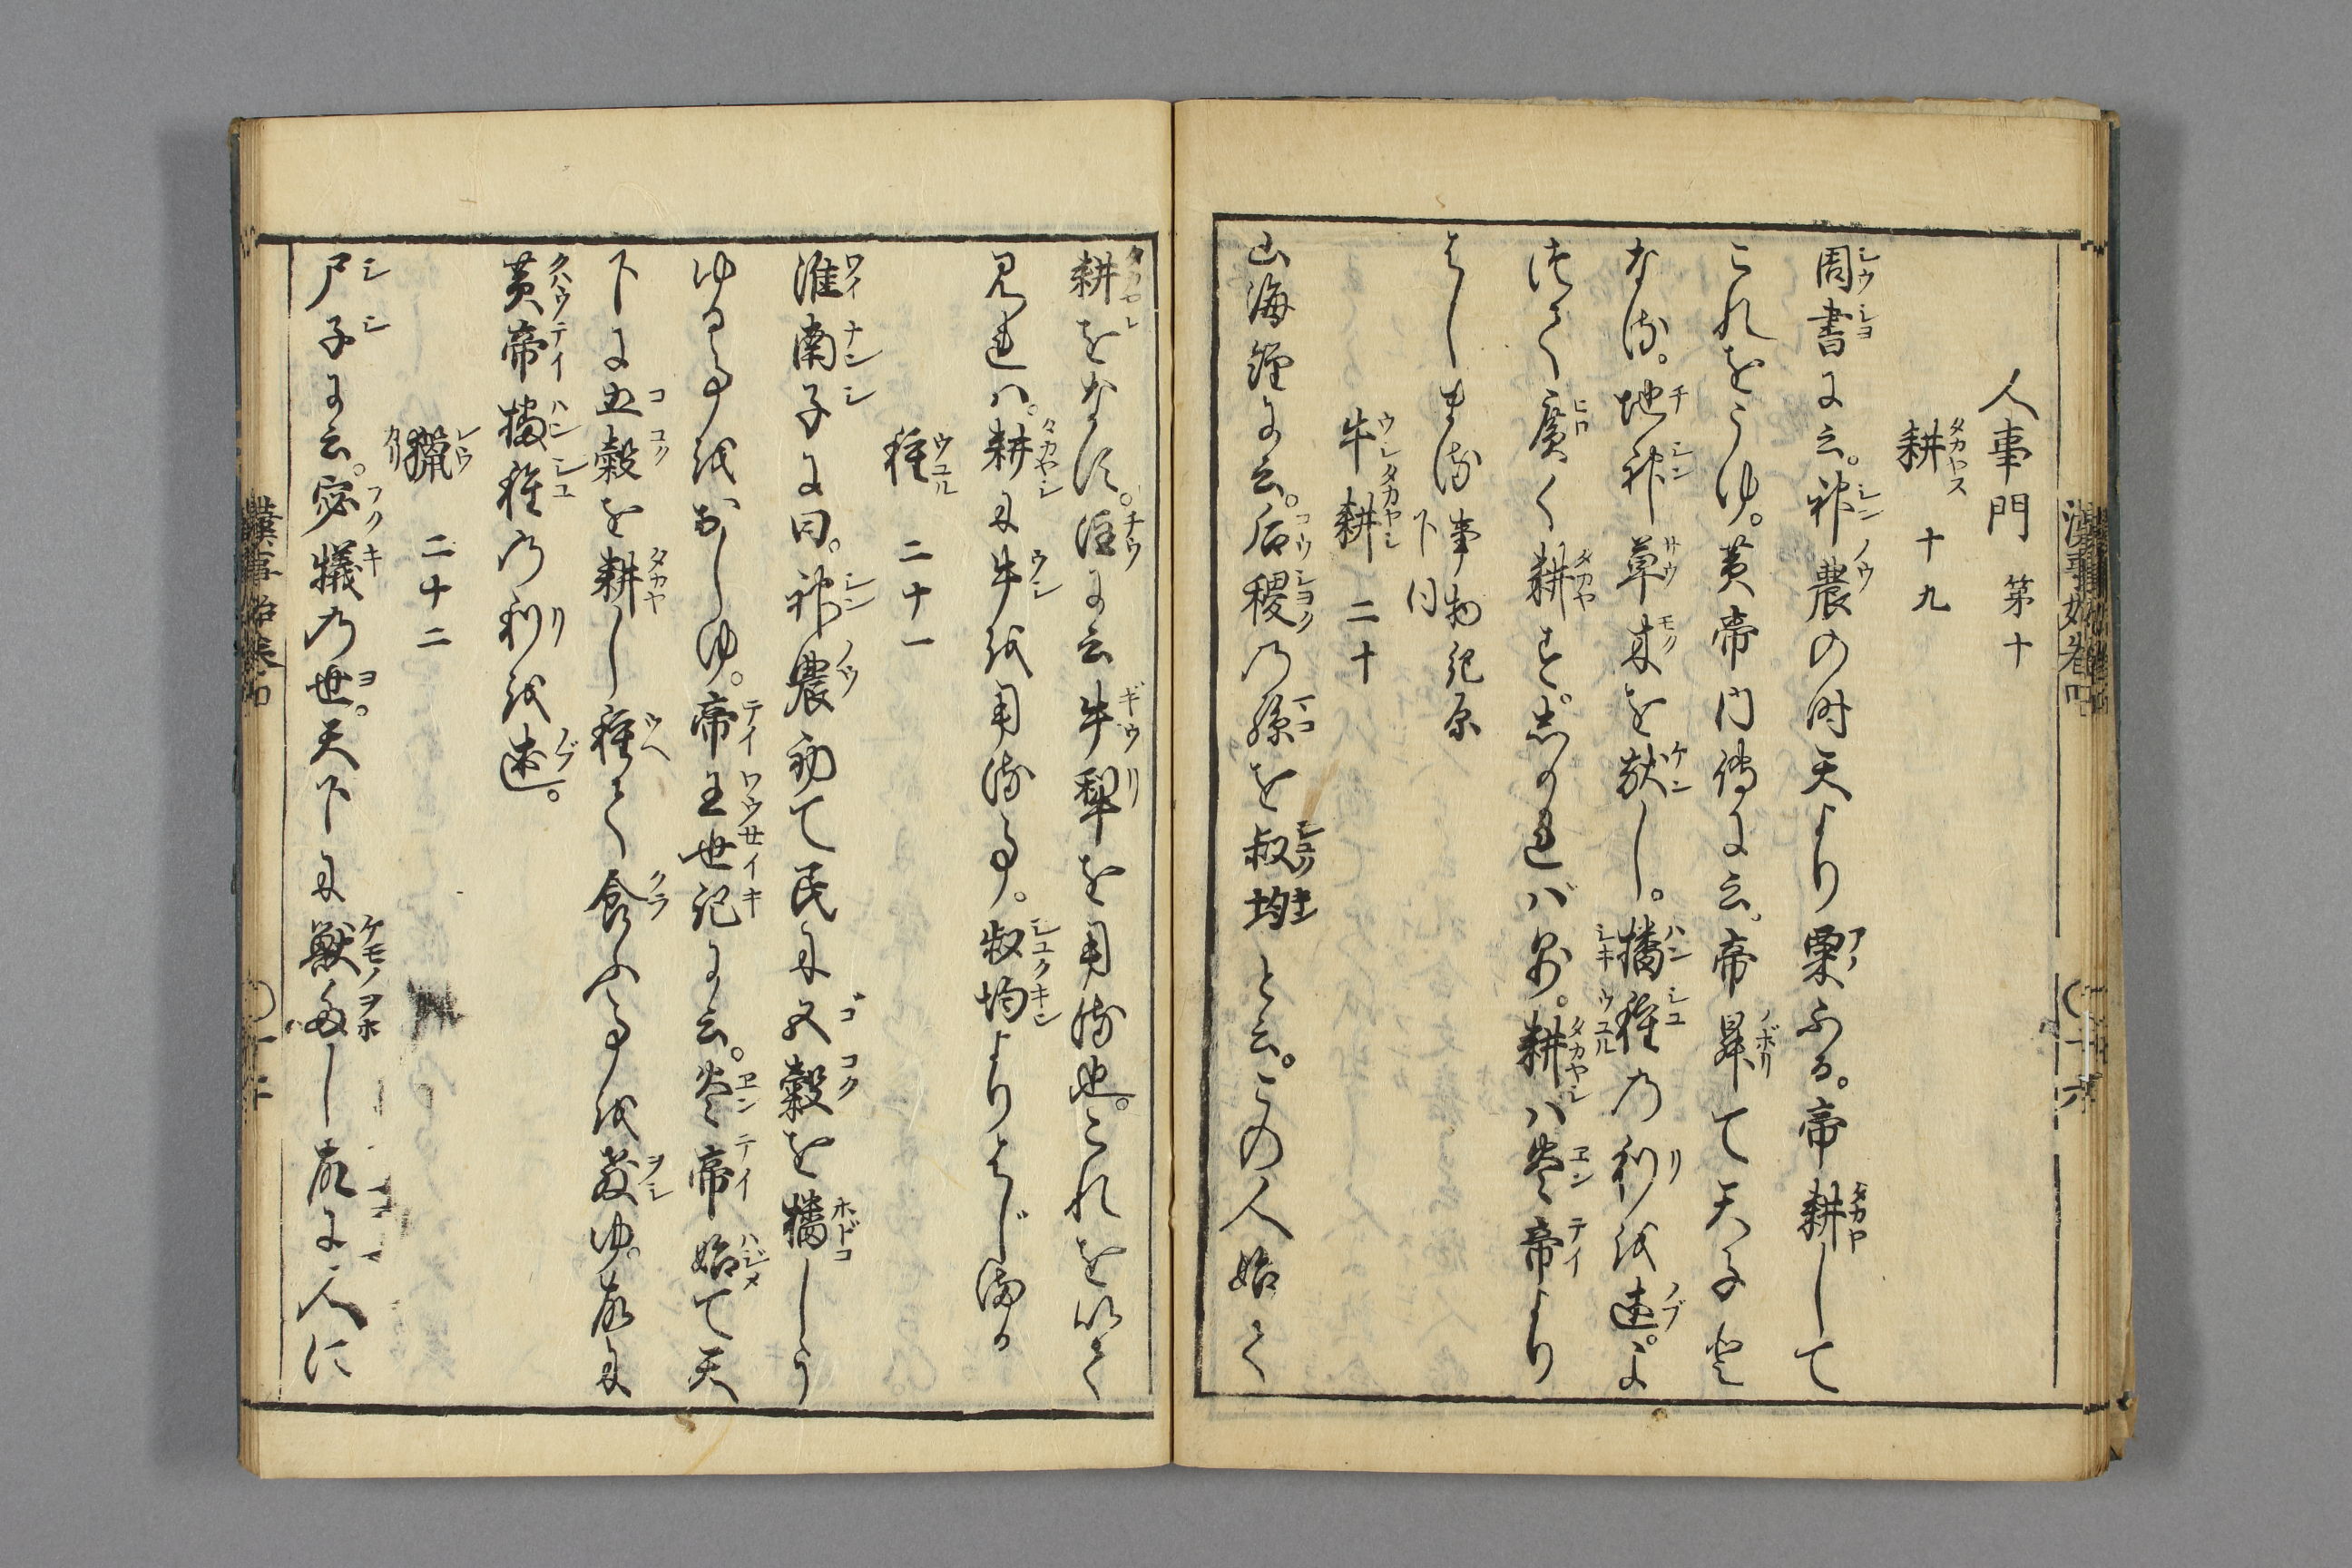 人事門 第十
耕 十九
周書に云。神農の時天より粟ふる。帝耕して
これをうゆ。黄帝内傳に云。帝昇て天子と
なる。地神草木を献し。播種の利を述。よ
つて廣く耕す。しかれば則。耕ハ炎帝より
はしまる 事物紀原
下同
牛耕 二十
山海經に云。后稷の孫を叔均と云。この人始て
耕をなす。注に云牛犂を用る也。これを以て
見れハ。耕に牛を用る事。叔均よりはじまる
種 二十一
淮南子に曰。神農初て民に五穀を播しう
ゆる事をおしゆ。帝王世記に云。炎帝始て天
下に五穀を耕し種て食ふ事を教ゆ。故に
黄帝播種の利を述。
獵 二十二
尸子に云。宓犧の世。天下に獣多し故に人に